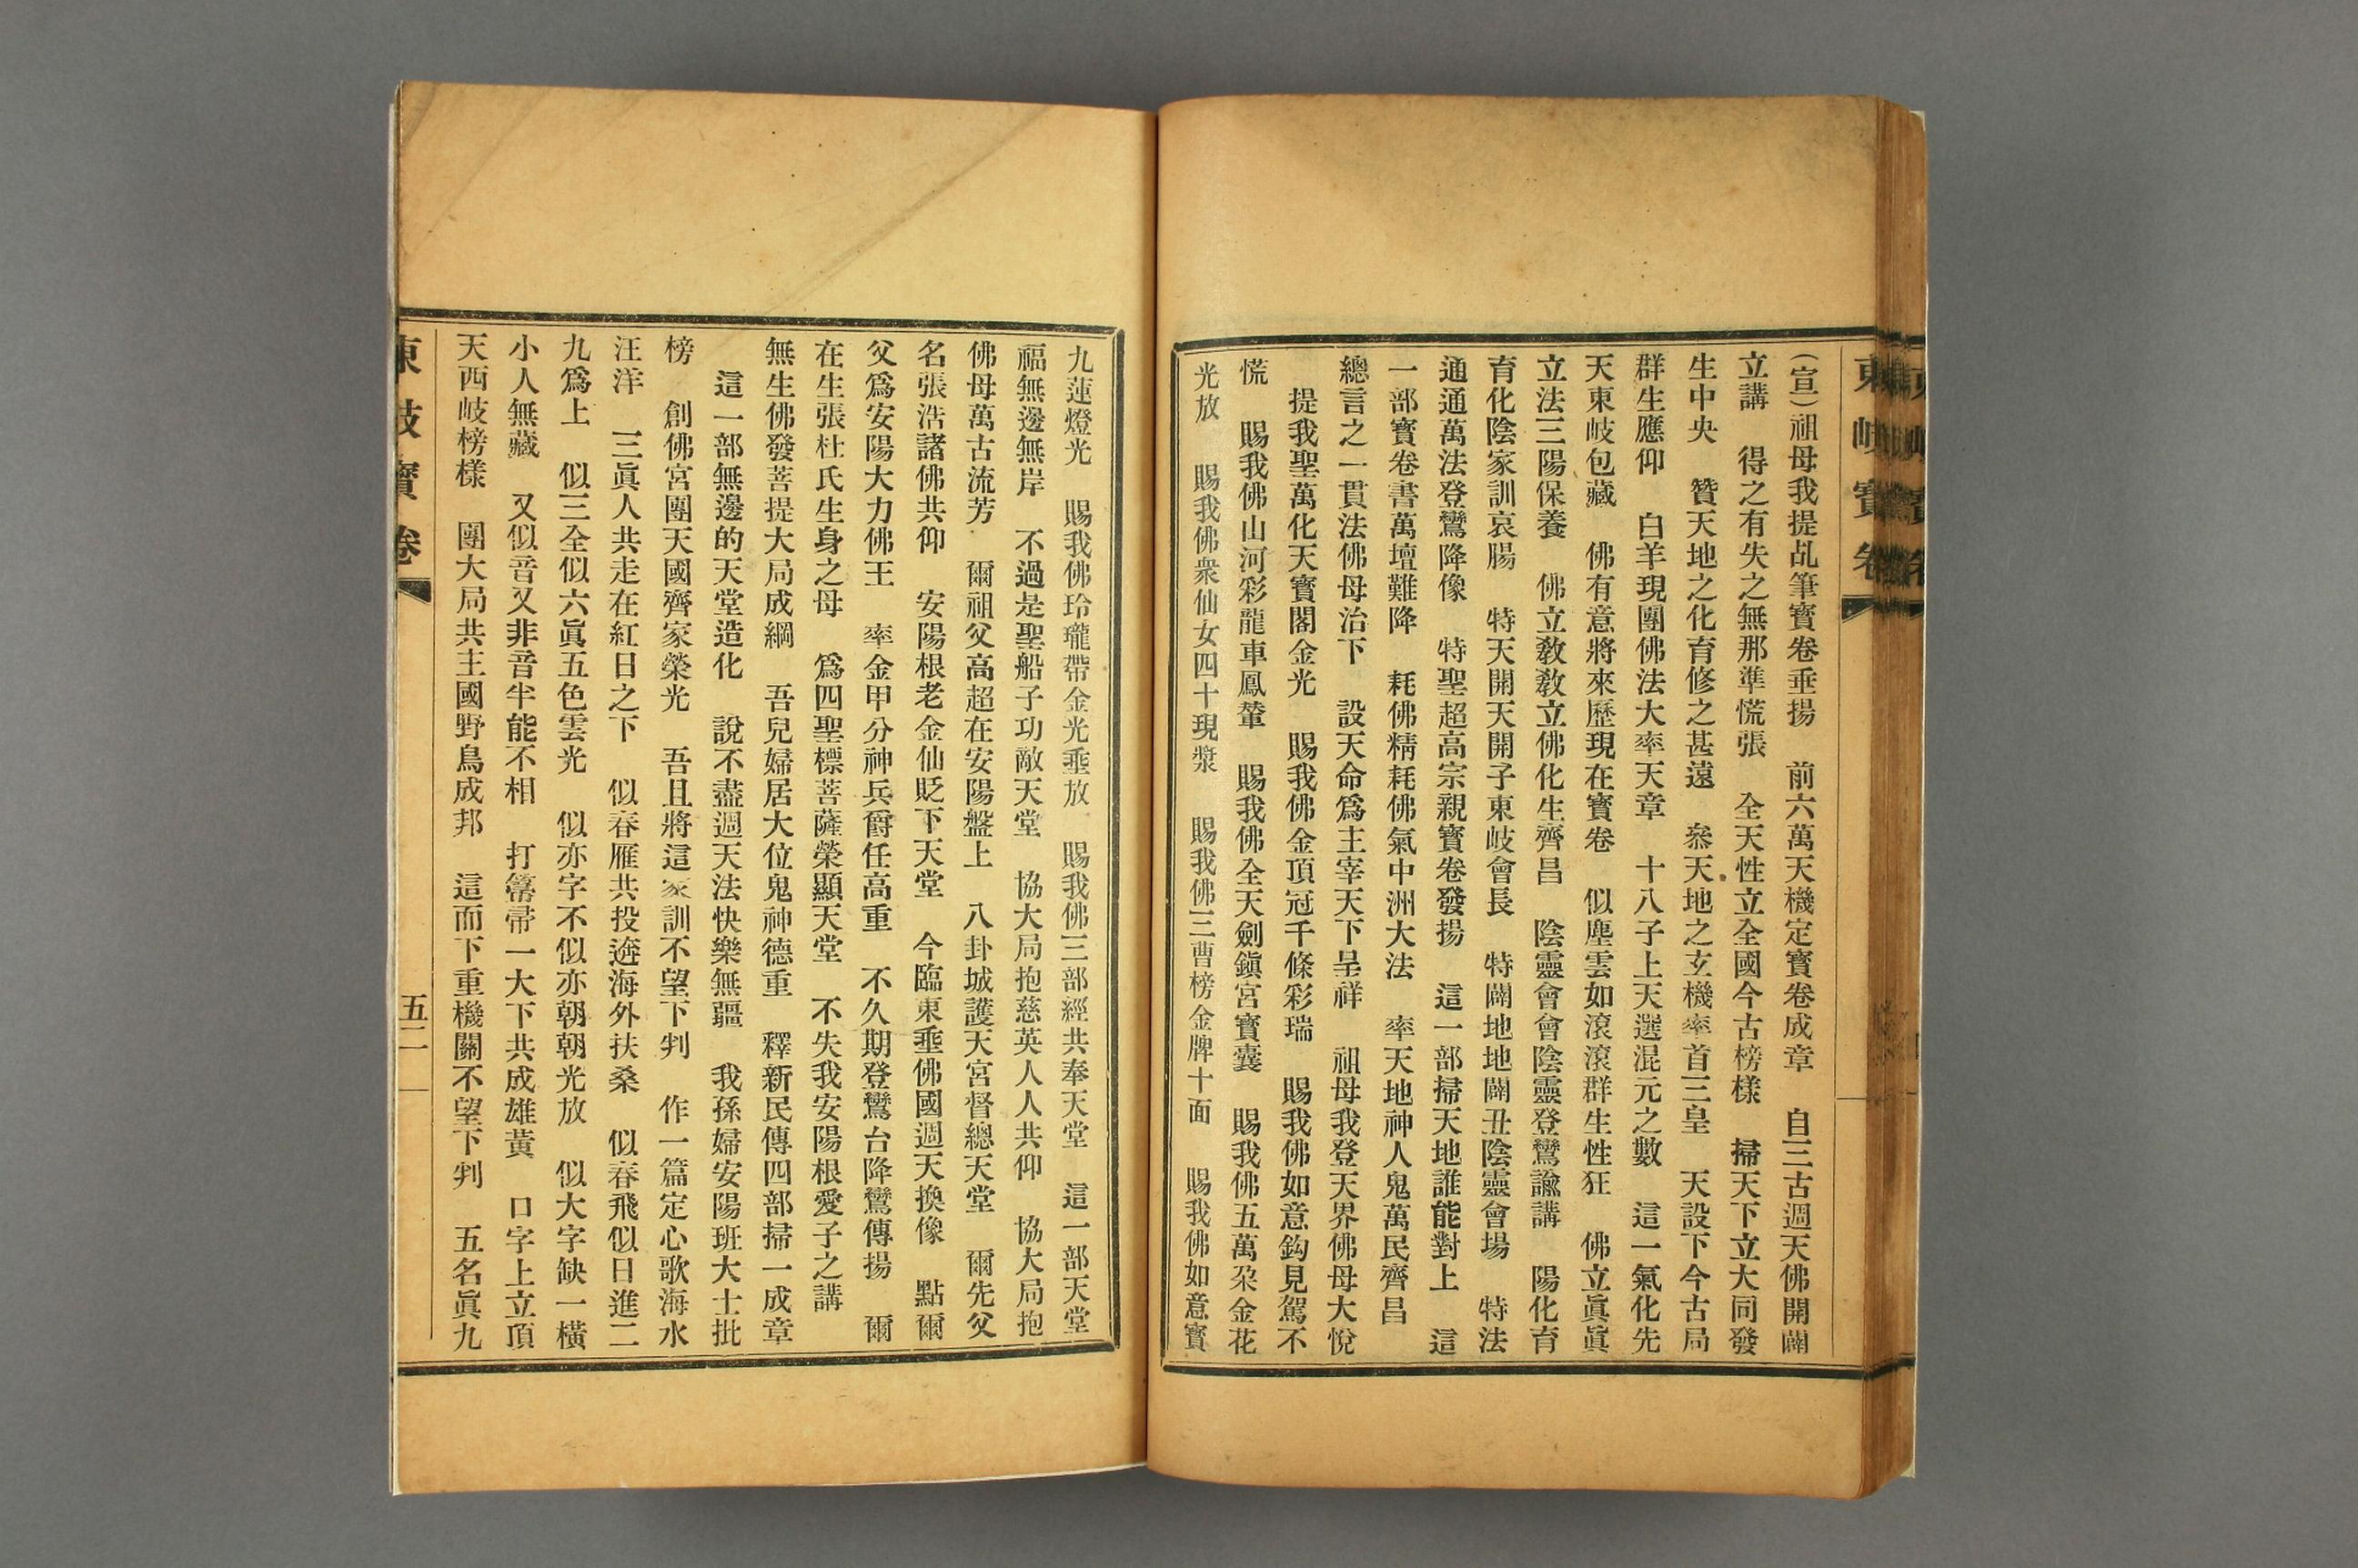 東岐寶卷
(宣)祖母我提乩筆寶卷垂揚　前六萬天機定寶卷成章　自三古週天佛開闢
立講　得之有失之無那準慌張　全天性立全國今古榜樣　掃天下立大同發
生中央　贊天地之化育修之甚遠　叅天地之玄機率首三皇　天設下今古局
群生應仰　白羊現團佛法大率天章　十八子上天選混元之數　這一氣化先
天東岐包藏　佛有意將來歷現在寶卷　似塵雲如滾滾群生性狂　佛立眞眞
立法三陽保養　佛立敎敎立佛化生齊昌　陰靈會會陰靈登鸞諭講　陽化育
育化陰家訓哀腸　特天開天開子東岐會長　特闢地地闢丑陰靈會場　特法
通通萬法登鸞降像　特聖超高宗親寶卷發揚　這一部掃天地誰能對上　這
一部寶卷書萬壇難降　耗佛精耗佛氣中洲大法　率天地神人鬼萬民齊昌
總言之一貫法佛母治下　設天命爲主宰天下呈祥　祖母我登天界佛母大悅
提我聖萬化天寶閣金光　賜我佛金頂冠千條彩瑞　賜我佛如意鈎見駕不
慌　賜我佛山河彩龍車鳳輦　賜我佛全天劍鎭宮寶囊　賜我佛五萬朶金花
光放　賜我佛衆仙女四十現漿　賜我佛三曹榜金牌十面　賜我佛如意寶
九蓮燈光　賜我佛玲瓏帶金光垂放　賜我佛三部經共奉天堂　這一部天堂
福無邊無岸　不過是聖船子功敵天堂　協大局抱慈英人人共仰　協大局抱
佛母萬古流芳　爾祖父高超在安陽盤上　八卦城護天宮督總天堂　爾先父
名張浩諸佛共仰　安陽根老金仙貶下天堂　今臨東垂佛國週天換像　點爾
父爲安陽大力佛王　率金甲分神兵爵任高重　不久期登鸞台降鸞傳揚　爾
在生張杜氏生身之母　爲四聖標菩薩榮顯天堂　不失我安陽根愛子之講
無生佛發菩提大局成綱　吾兒婦居大位鬼神德重　釋新民傳四部掃一成章
這一部無邊的天堂造化　說不盡週天法快樂無疆　我孫婦安陽班大士批
榜　創佛宮團天國齊家榮光　吾且將這家訓不望下判　作一篇定心歌海水
汪洋　三眞人共走在紅日之下　似春雁共投遊海外扶桑　似春飛似日進二
九爲上　似三全似六眞五色雲光　似亦字不似亦朝朝光放　似大字缺一橫
小人無藏　又似音又非音半能不相　打箒帚一大下共成雄黃　口字上立頂
天西岐榜樣　團大局共主國野鳥成邦　這而下重機關不望下判　五名眞九
東岐寶卷
五二